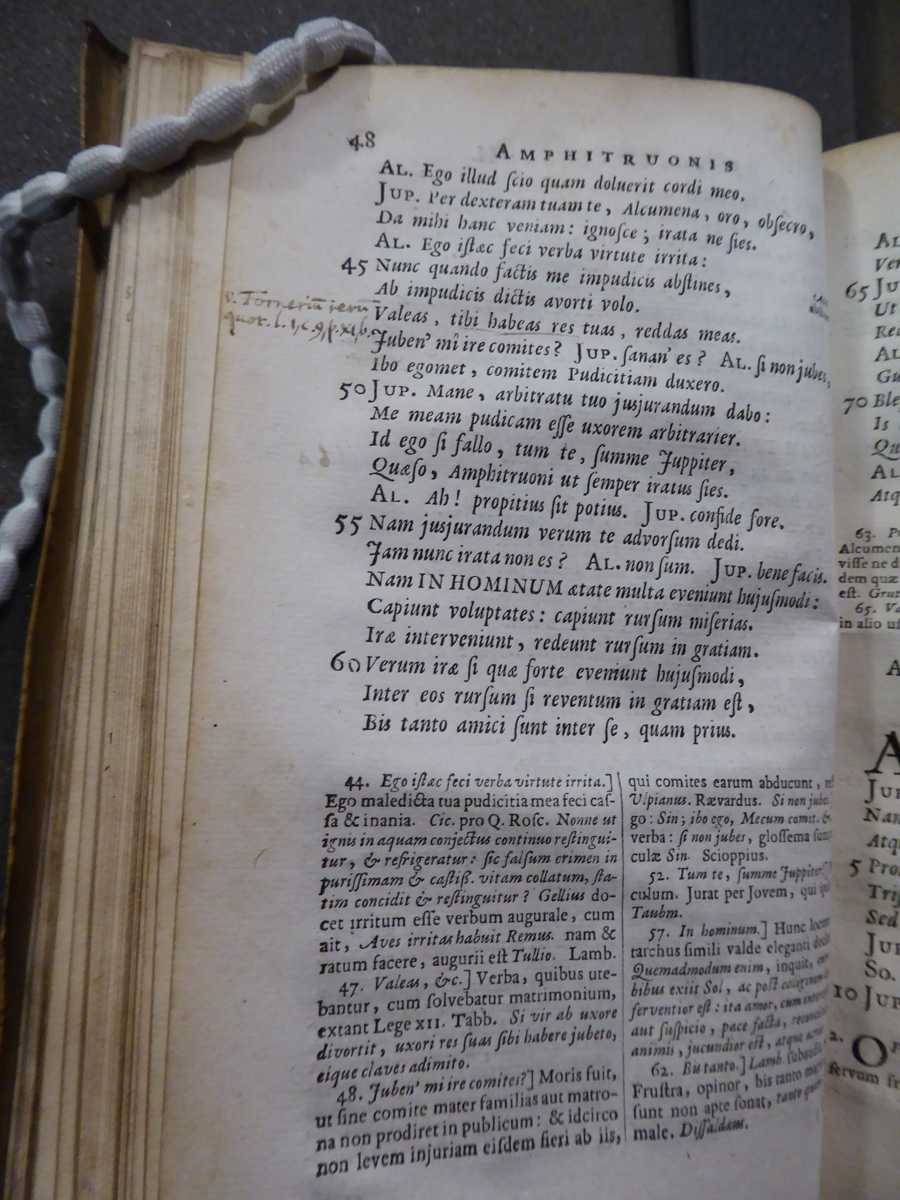 48 AMPHITRUONIS
AL. Ego illud ſcio quam doluerit cordi meo.
JUP. Per dexteram tuam te, Alcumena, oro, obſecro,
Da mihi hanc veniam: ignoſce; irata ne ſies.
AL. Ego iſtæc feci verba virtute irrita:
45 Nunc quando factis me impudicis abſtines,
Ab impudicis dictis avorti volo.
Valeas, tibi habeas res tuas, reddas meas.
Juben' mi ire comites? JUP. ſanan' es? AL. ſi non jubes,
Ibo egomet, comitem Pudicitiam duxero.
50 JUP. Mane, arbitratu tuo jusjurandum dabo:
Me meam pudicam eſſe uxorem arbitrarier.
Id ego ſi fallo, tum te, ſumme Juppiter,
Quæſo, Amphitruoni ut ſemper iratus ſies.
AL. Ah! propitius ſit potius. JUP. confide fore.
55 Nam jusjurandum verum te advorſum dedi.
Jam nunc irata non es? AL. non ſum. JUP. bene facis.
Nam IN HOMINUM ætate multa eveniunt hujuſmodi:
Capiunt voluptates: capiunt rurſum miſerias.
Iræ interveniunt, redeunt rurſum in gratiam.
60 Verum iræ ſi quæ forte eveniunt hujuſmodi,
Inter eos rurſum ſi reventum in gratiam eſt,
Bis tanto amici ſunt inter ſe, quam prius.
quot. l. 1, c. 9,
44. Ego iſtæc feci verba virtute irrita.]
Ego maledicta tua pudicitia mea feci caſ-
ſa & inania. Cic. pro Q. Roſc. Nonne ut
ignis in aquam conjectus continuo reſtingui-
tur, & refrigeratur: ſic falſum crimen in
puriſſimam & caſtiſſ. vitam collatum, ſta-
tim concidit & reſtinguitur? Gellius do-
cet irritum eſſe verbum augurale, cum
ait, Aves irritas habuit Remus. nam &
ratum facere, augurii eſt Tullio. Lamb.
47. Valeas, &c.] Verba, quibus ute-
bantur, cum ſolvebatur matrimonium,
extant Lege XII. Tabb. Si vir ab uxore
divortit, uxori res ſuas ſibi habere jubeto,
eique claves adimito.
48. Juben' mi ire comites?] Moris fuit,
ut ſine comite mater familias aut matro-
na non prodiret in publicum: & idcirco
non levem injuriam eiſdem fieri ab iis,
qui comites earum abducunt,
Ulpianus. Rævardus. Si non jubes
go: Sin; ibo ego, Mecum comit. &
verba: ſi non jubes, gloſſema ſunt
culæ Sin. Scioppius.
52. Tum te, ſumme Juppiter
culum. Jurat per Jovem, qui
Taubm.
57. In hominum.] Hunc locum
tarchus ſimili valde eleganti
Quemadmodum enim, inquit,
bibus exiit Sol, ac poſt
ferventior eſt: ita amor, cum
aut ſuſpicio, pace facta,
animis, jucundior eſt, atque
62. Bis tanto.] Lamb.
Fruſtra, opinor, bis tanto
ſunt non apte ſonat,
male.
AL
Ver
65 JU
Ut
Rea
AL
Gu
70 Ble
Is
Qu
AL
Atq
63.
Alcumen
viſſe ne d
dem quæ
eſt.
65. Va
in alio uſ
A
A
JUP
Nam
Atqu
5 Pro
Triſ
Sed
JUP
SO.
10 JUP
2. O
ſervum